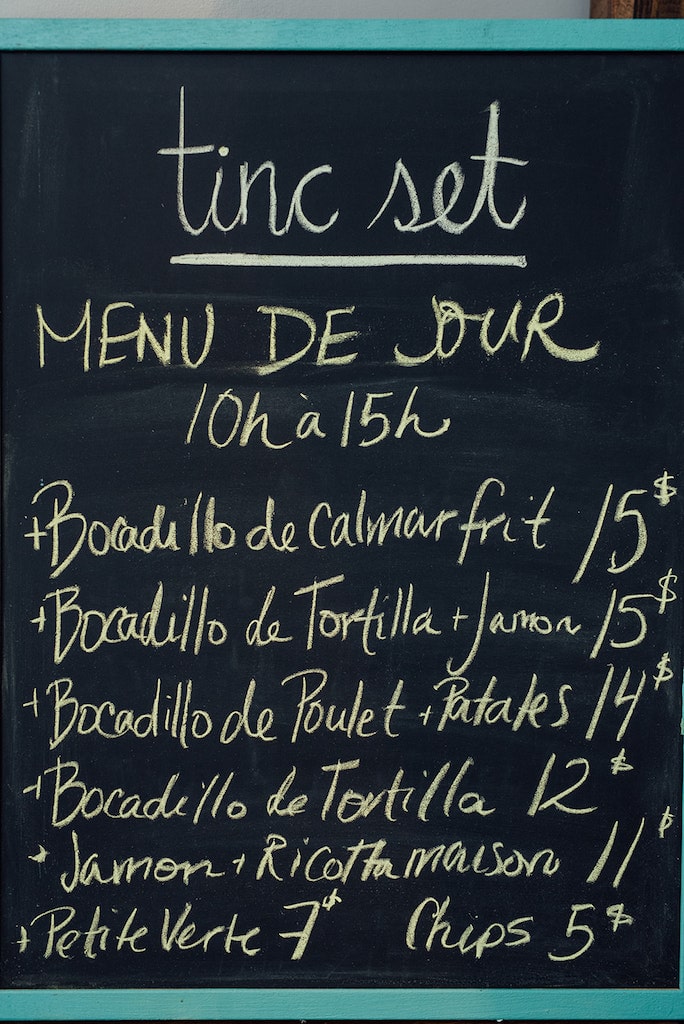 tinc set
MENU DE JOUR
10h à 15h
+Bocadillo de Calmar frit 15$
+Bocadillo de Tortilla + Jamon 15$
+Bocadillo de Poulet + Patates 14$
+Bocadillo de Tortilla 12$
+Jamon + Ricotta maison 11$
+Petite Verte 7$ Chips 5$